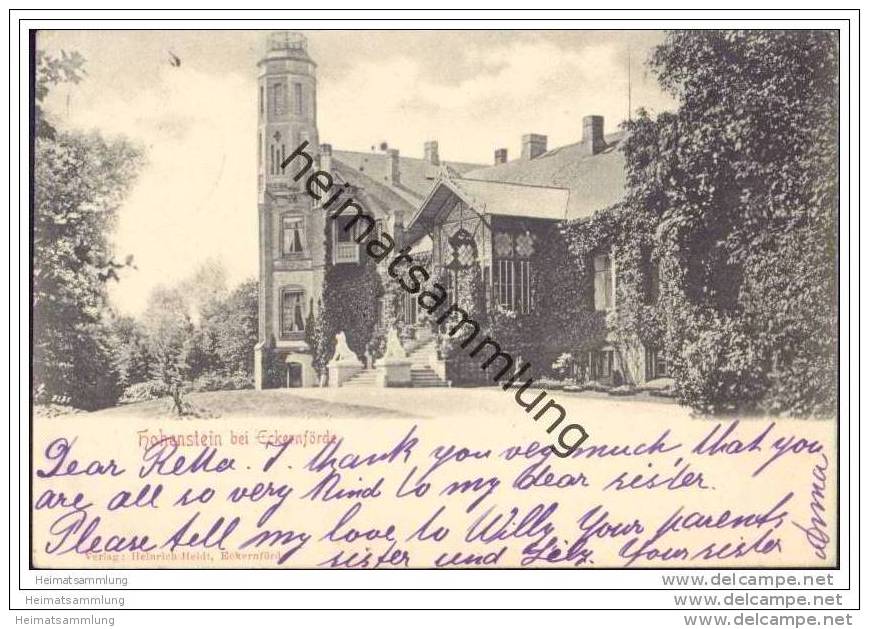 heimatsammlung
Hohenstein bei Eckernförde
Dear Retta. I thank you very much, that you
are all so very kind to my dear sister.
Please tell my love to Willy Your parents
sister und Your sister
Anna
Verlag: Heinrich Heldt, Eckernförd
Heimatsammlung www.heimatsammlung.de
Heimatsammlung www.heimatsammlung.de
Heimatsammlung www.heimatsammlung.de